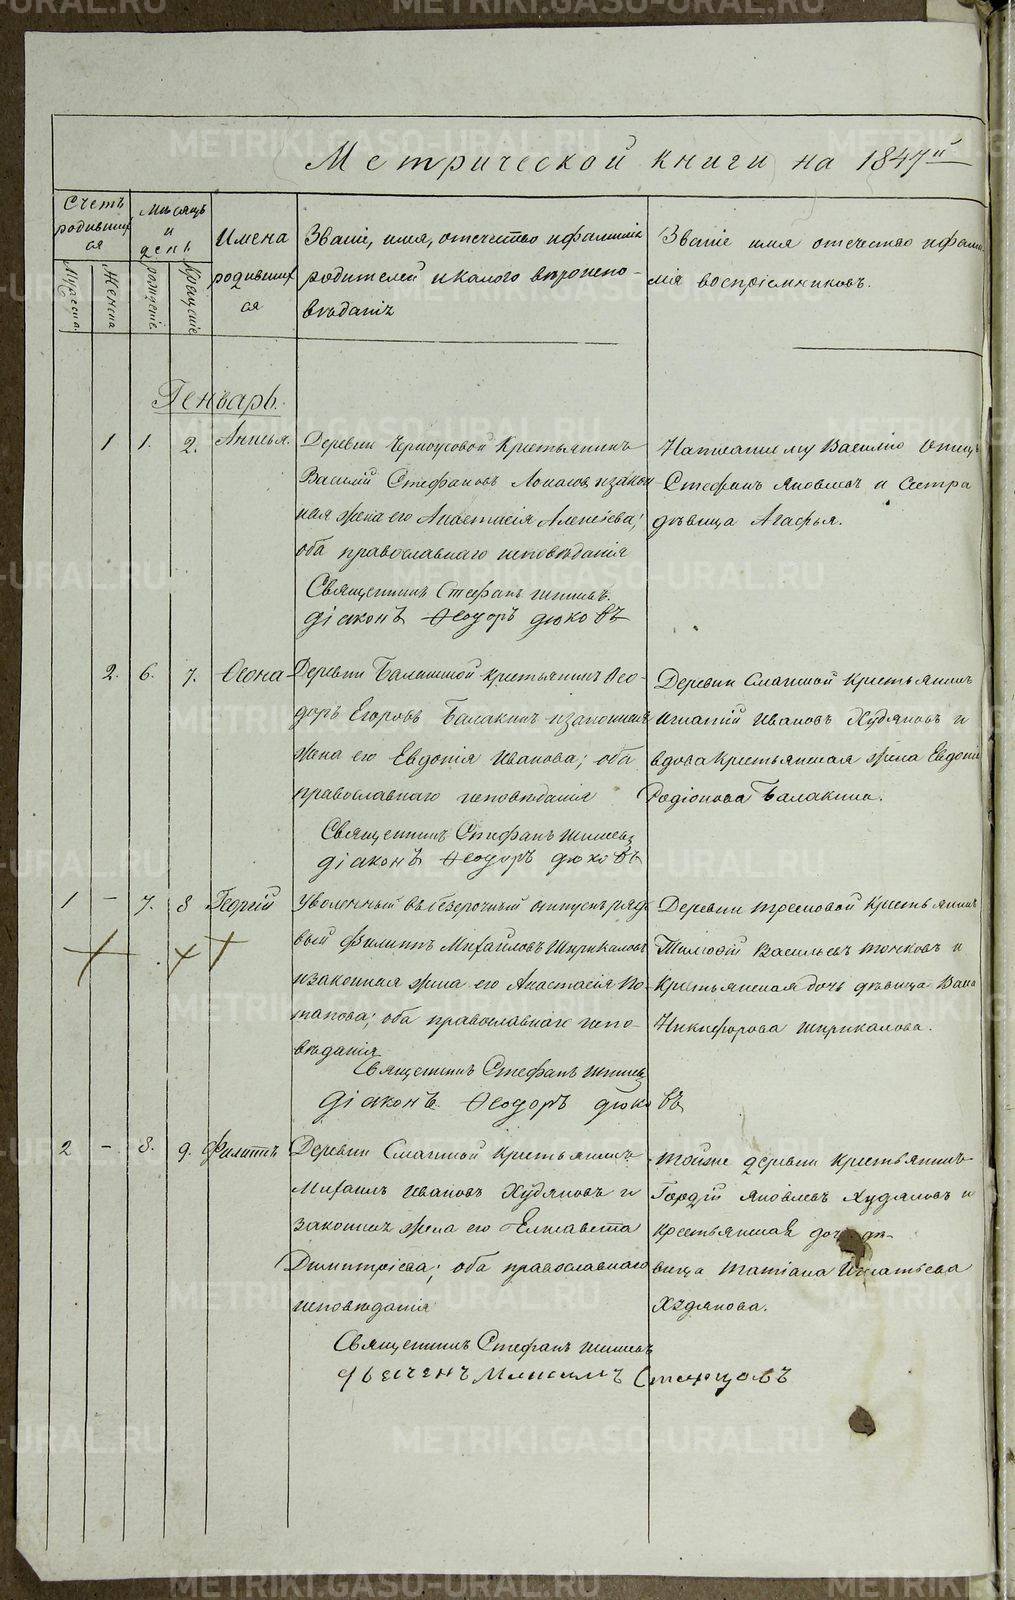 Метрической книги на 1847й
Счетъ
родивших
ся
Мужеска
Женска
Мѣсяцъ
и
день
рожденіе
Крещеніе
Имена
родивших
ся
Званіе, имя, отечество и фамилія
родителей и какого вѣроиспо-
вѣданія
Званіе имя отечество и фами
лія воспріемниковъ.
Генварь.
1 1. 2. Анисья.
Деревни Черноусовой Крестьянинъ
Василій Стефановъ и закон
ная жена его Анастасія Алексѣева;
оба православнаго исповѣданія
Священникъ Стефанъ
діаконъ Ѳеодоръ Дюковъ
Написанному Василію Отецъ
Стефанъ Яковлевъ и Сестра
дѣвица Агафья.
2. 6. 7.
Деревни Крестьянинъ Ѳео-
доръ Егоровъ Балакинъ и законная
жена его Евдокія Иванова; оба
православнаго исповѣданія
Священникъ Стефанъ
діаконъ Ѳеодоръ Дюковъ
Деревни Крестьянинъ
Игнатій Ивановъ Худяковъ и
вдова Крестьянская жена Евдокія
Родіонова Балакина.
1 - 7. 8 Георгій
Уволенный въ безсрочный отпускъ рядо
вый Филиппъ Михайловъ Ширикаловъ
и законная жена его Анастасія По-
тапова; оба православнаго испо-
вѣданія
Священникъ Стефанъ
діаконъ Ѳеодоръ Дюковъ
Деревни Крестьянинъ
Тимофей Васильевъ и
Крестьянская дочь дѣвица
Никифорова Ширикалова.
2 - 8. 9. Филиппъ
Деревни Крестьянинъ
Михаилъ Ивановъ Худяковъ и
законная жена его Елисавета
Димитріева; оба православнаго
исповѣданія
Священникъ Стефанъ
Тойже деревни Крестьянинъ
Гордѣй Яковлевъ Худяковъ и
Крестьянская дочь дѣ-
вица Татіана Игнатьева
Худякова.
METRIKI.GASO-URAL.RU